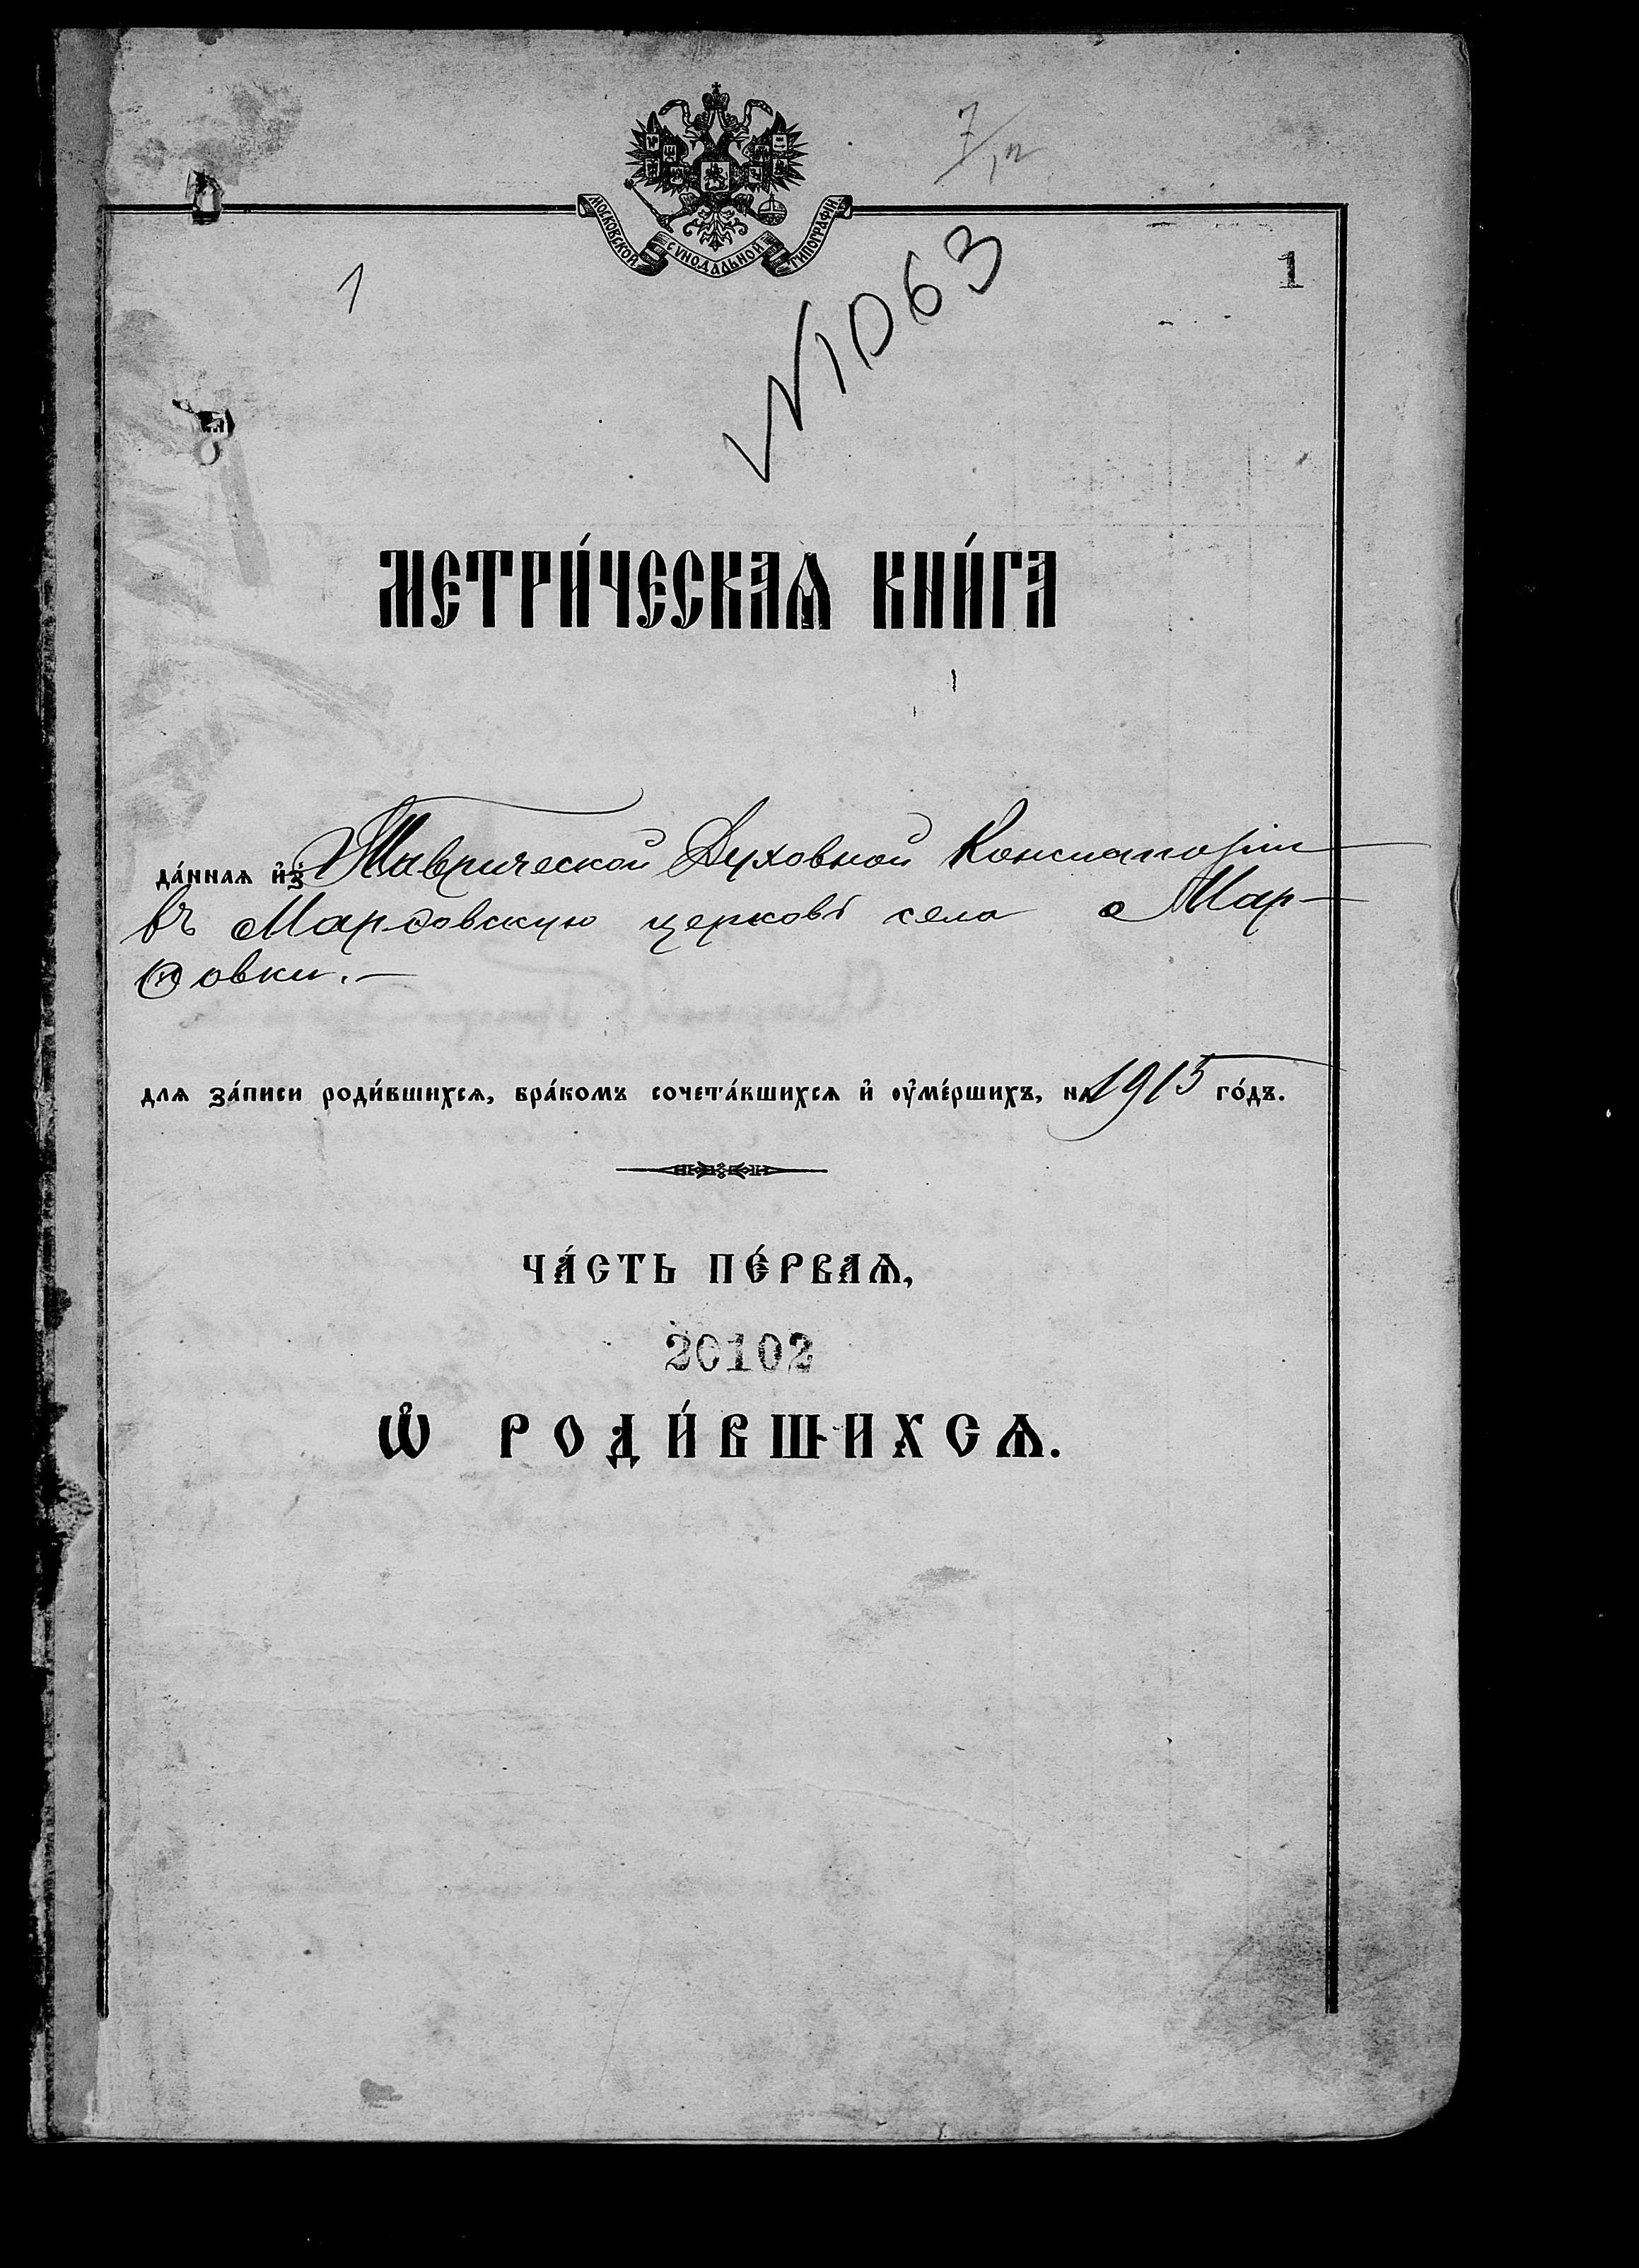 7/12
МОСКОВСКОЙ СѴНОДАЛЬНОЙ ТИПОГРАФІИ
1
1
№1063
МЕТРИ́ЧЕСКАѦ КНИ́ГА
да́нная и҆з̾ Таврической Духовной Консисторіи
въ Мордовскую церковь села Мар-
ѳовки.—
для за́писи роди́вшихся, бра́комъ сочета́вшихся и҆ оу҆ме́ршихъ, на 1915 го́дъ.
ЧА́СТЬ ПЕ́РВАѦ,
20102
Ѡ҆ РОДИ́ВШИХСѦ.